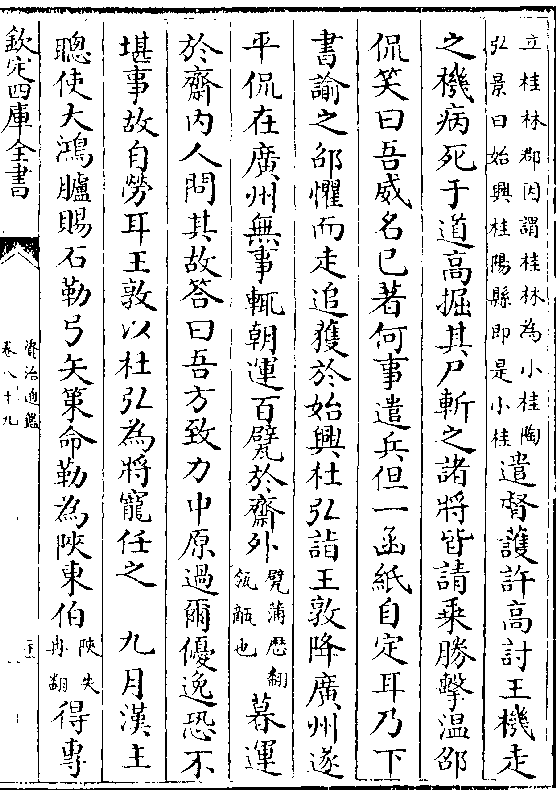 立桂林郡因謂桂林為小桂陶
弘景曰始興桂陽縣即是小桂
遣督護許高討王機走
之機病死于道高掘其尸斬之諸將皆請乘勝擊溫邵
侃笑曰吾威名已著何事遣兵但一函紙自定耳乃下
書諭之邵懼而走追獲於始興杜弘詣王敦降廣州遂
平侃在廣州無事輒朝運百甓於齋外
甓蒲歴翻
瓴甋也
暮運
於齋内人問其故答曰吾方致力中原過爾優逸恐不
堪事故自勞耳王敦以杜弘為將寵任之 九月漢主
聰使大鴻臚賜石勒弓矢策命勒為陜東伯
陜失
冉翻
得專
欽定四庫全書
資治通鑑
卷八十九